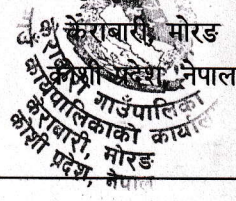 केराबारी, मोरङ
कोशी प्रदेश, नेपाल
केराबारी गाउँपालिका
गाउँ कार्यपालिकाको कार्यालय
केराबारी, मोरङ
कोशी प्रदेश, नेपाल